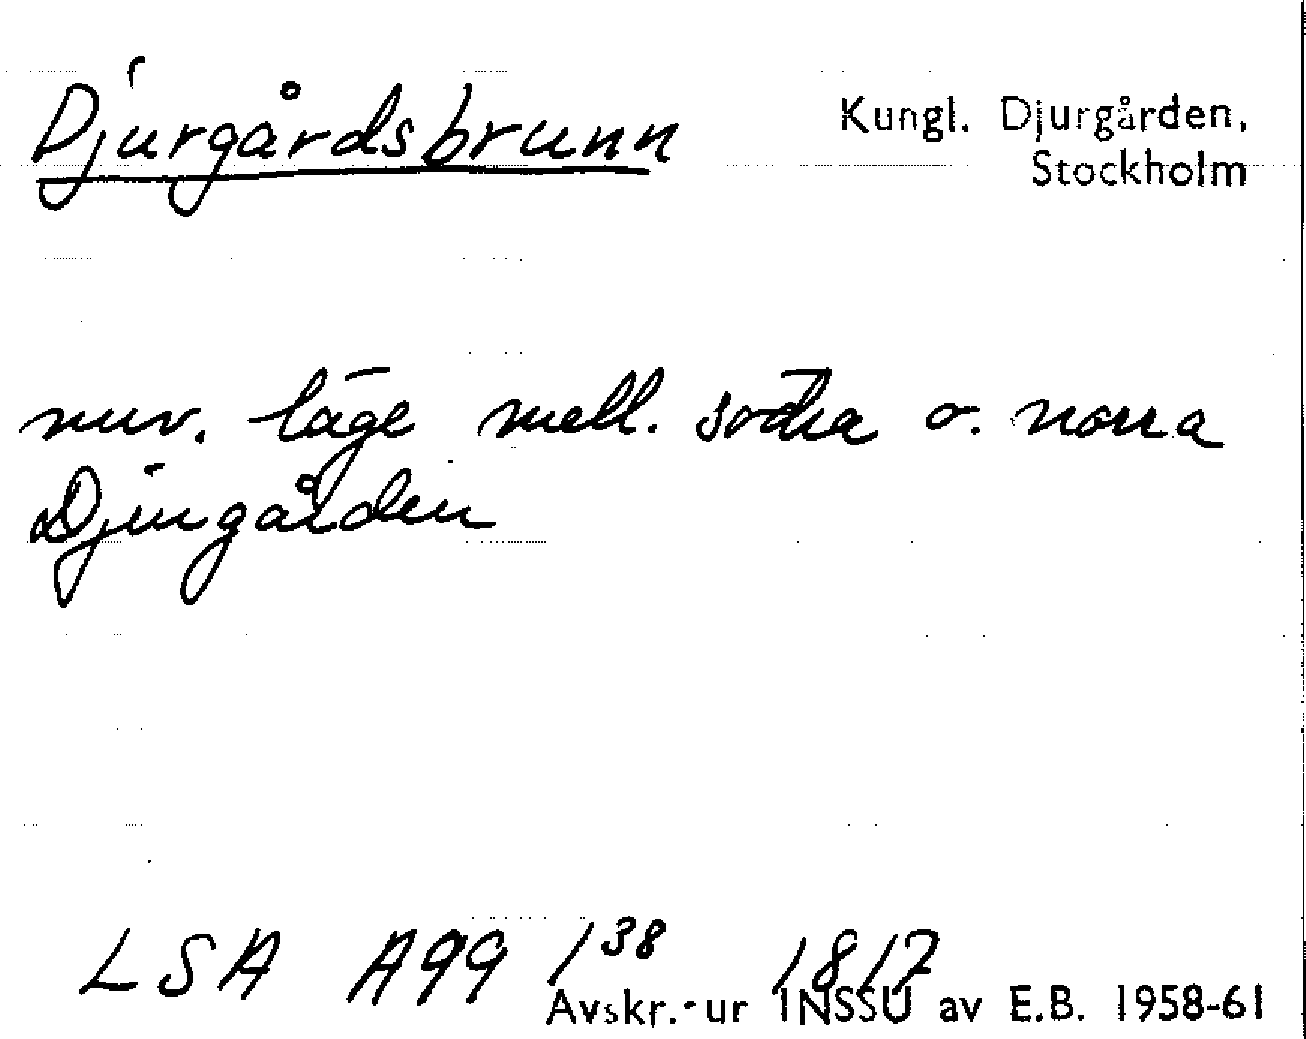 Djurgårdsbrunn
Kungl. Djurgården,
Stockholm
nuv. läge mell. södra o. norra
Djurgården
LSA A99 1³⁸ 1817
Avskr. ur INSSU av E.B. 1958-61